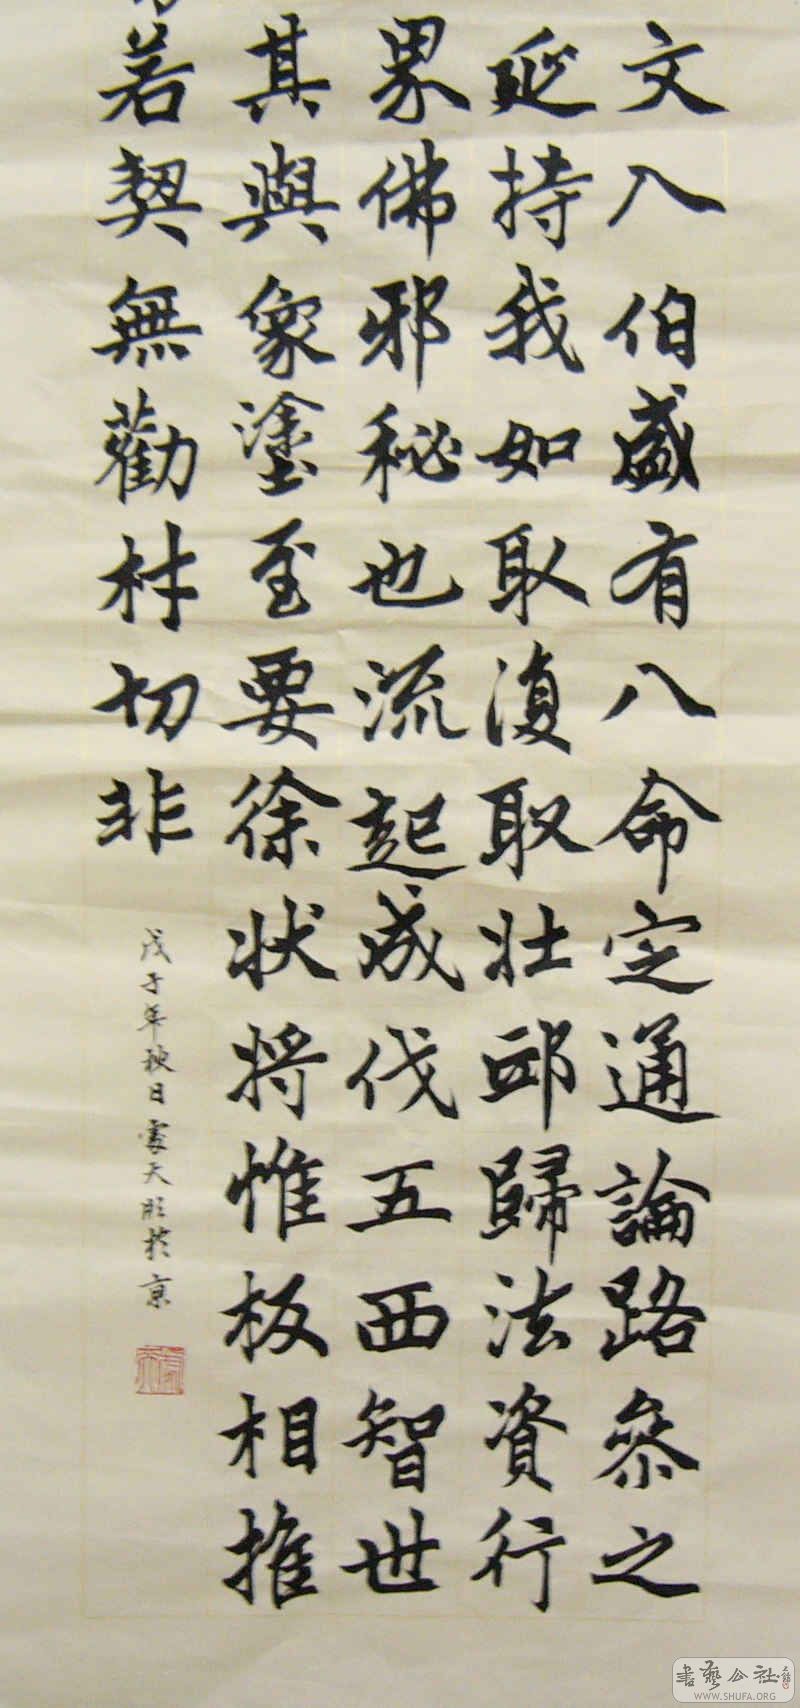 文八伯盛有八命定通論路参之
延持我如取復取壯邱歸法資行
界佛邪秘也流起成伐五西智世
其與象塗至要徐状將惟板相推
若契無勸材切非
戊子年秋日 天 於京
書藝公社
WWW.SHUFA.ORG